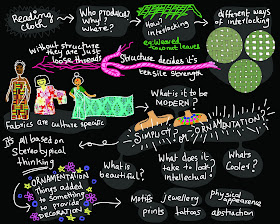 Reading cloth
Who produces?
Why?
Where?
How?
interlocking
different ways
of interlocking
Without structure
they are just
loose threads
Structure decides it's
tensile strength
What is it to be
MODERN?
SIMPLICITY or ORNAMENTATION?
Fabrics are culture specific
It's all based on
Stereotypical
thinking
ORNAMENTATION
Things added
to something
to provide
DECORATION
What is
beautiful?
What does it
take to look
intellectual?
What's
Cooler?
Motifs
prints
jewellery
tattoos
physical
appearance
abstraction